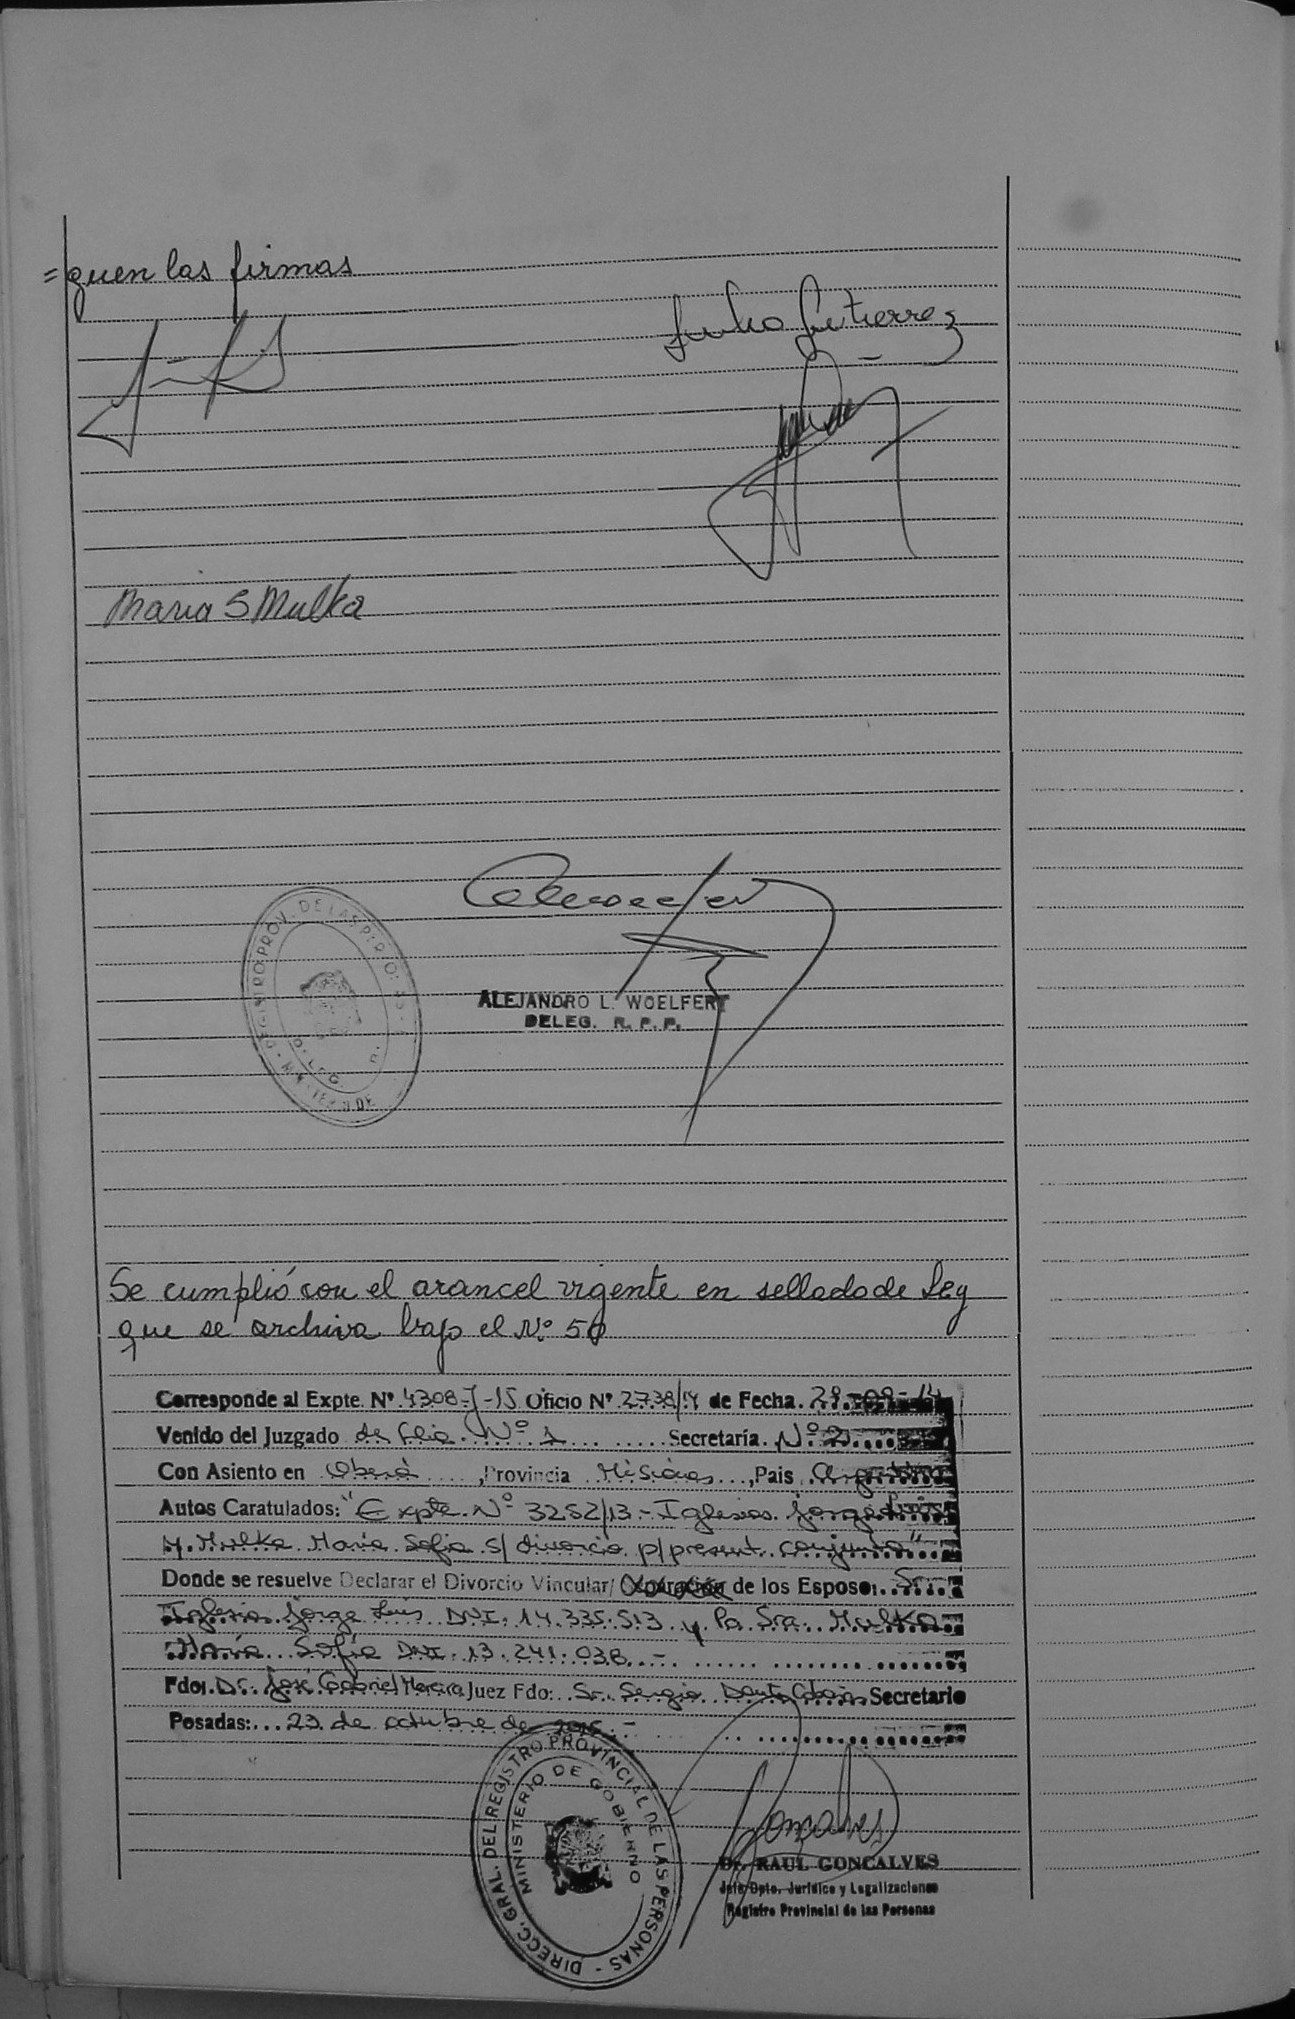 = quen las firmas
Julio Gutierrez
Maria S Mulka
ALEJANDRO L. WOELFERT
DELEG. R. P. P.
Se cumplió con el arancel vigente en sellado de Ley
que se archiva bajo el Nº 50
Corresponde al Expte. Nº 4308-J-15 Oficio Nº 2738/14 de Fecha. 29-09-14
Venido del Juzgado de flia. Nº 1 Secretaría. Nº 2
Con Asiento en Oberá, Provincia Misiones, Pais Argentina
Autos Caratulados: "Expte. Nº 3252/13 - Iglesias Jorge Luis
y Mulka Maria Sofia s/ divorcio p/ present. conjunta"
Donde se resuelve Declarar el Divorcio Vincular/ de los Esposos: Sr.
Iglesias Jorge Luis DNI. 14.335.513 y la Sra. Mulka
María Sofía DNI. 13.241.038. -
Fdo: Dr. José Gabriel Moreira Juez Fdo: Sr. Sergio Secretario
Posadas: 23 de octubre de 2015.-
DIRECC. GRAL. DEL REGISTRO PROVINCIAL DE LAS PERSONAS -
MINISTERIO DE GOBIERNO
Dr. RAUL GONCALVES
Jefe Dpto. Jurídico y Legalizaciones
Registro Provincial de las Personas